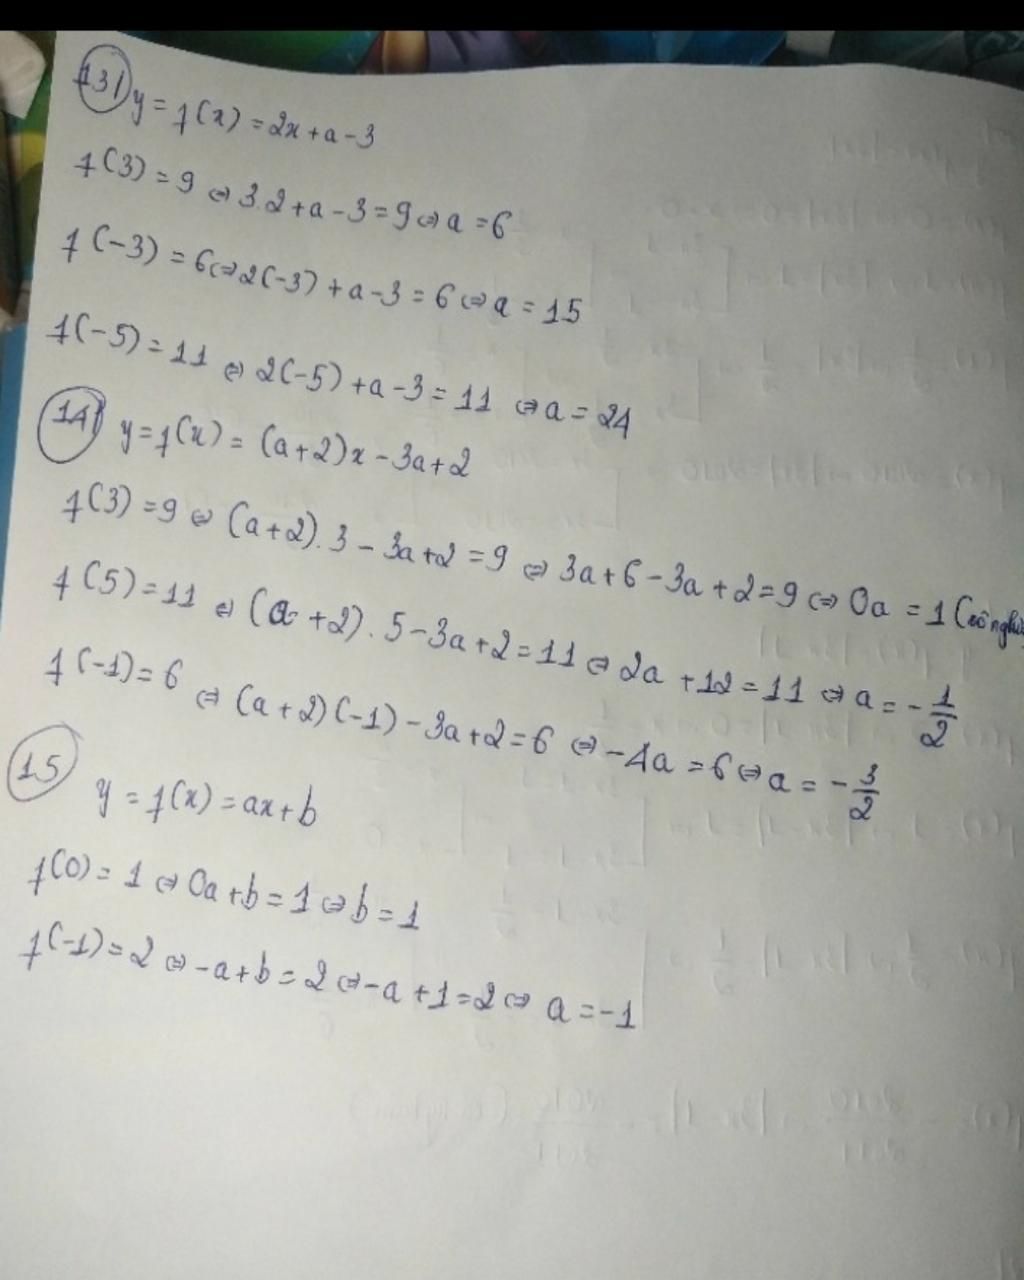 13/ y = f(x) = 2x + a - 3
f(3) = 9 ⇔ 3.2 + a - 3 = 9 ⇔ a = 6
f(-3) = 6 ⇔ 2(-3) + a - 3 = 6 ⇔ a = 15
f(-5) = 11 ⇔ 2(-5) + a - 3 = 11 ⇔ a = 24
14/ y = f(x) = (a+2)x - 3a + 2
f(3) = 9 ⇔ (a+2).3 - 3a + 2 = 9 ⇔ 3a + 6 - 3a + 2 = 9 ⇔ 0a = 1
f(5) = 11 ⇔ (a+2).5 - 3a + 2 = 11 ⇔ 2a + 12 = 11 ⇔ a = -1/2
f(-1) = 6 ⇔ (a+2)(-1) - 3a + 2 = 6 ⇔ -4a = 6 ⇔ a = -3/2
15 y = f(x) = ax + b
f(0) = 1 ⇔ 0a + b = 1 ⇔ b = 1
f(-1) = 2 ⇔ -a + b = 2 ⇔ -a + 1 = 2 ⇔ a = -1